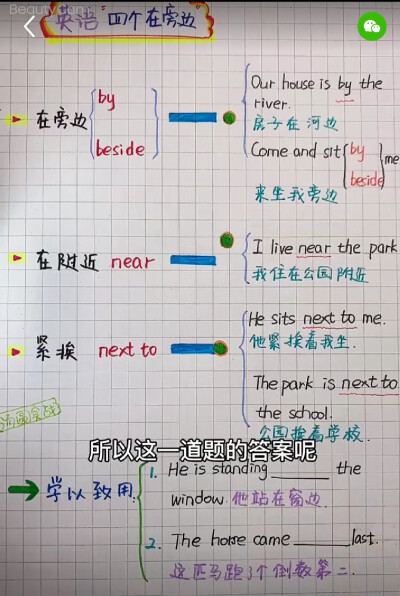 Beauty Cam
英语 "四个在旁边
在旁边
by
beside
Our house is by the
river.
房子在河边
Come and sit
by
beside
me
来坐我旁边
在附近 near
I live near the park
我住在公园附近
紧挨 next to
He sits next to me.
他紧挨着我坐.
The park is next to
the school.
公园挨着学校.
所以这一道题的答案呢
学以致用
1. He is standing ______ the
window. 他站在窗边.
2. The horse came ______ last.
这匹马跑了个倒数第二.